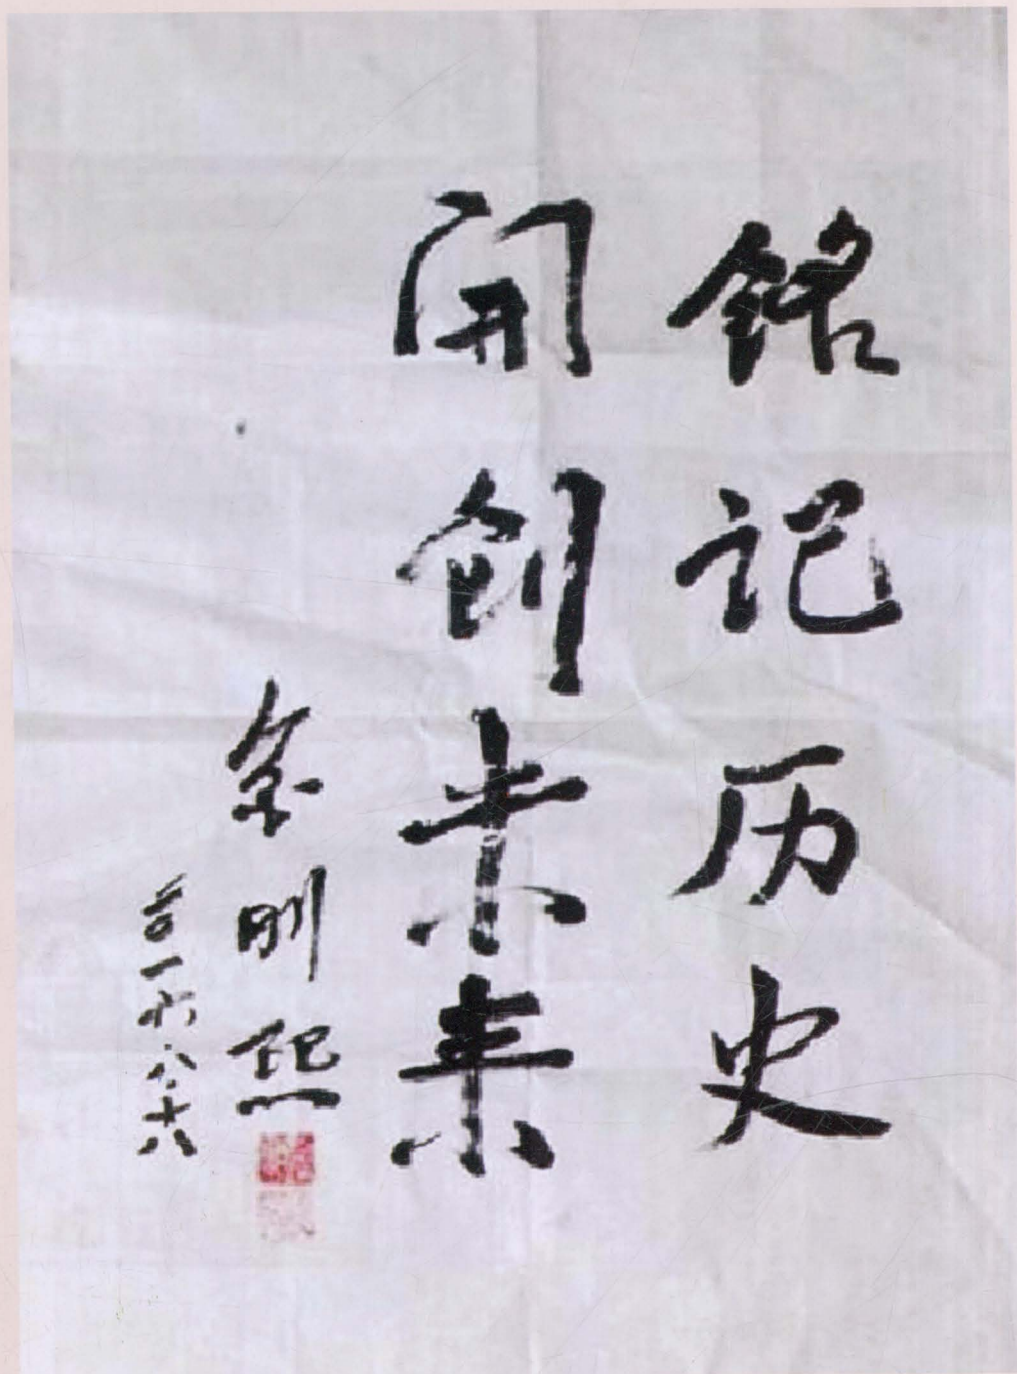 铭记历史
開创未来
余明熙
二〇一六.八.十八